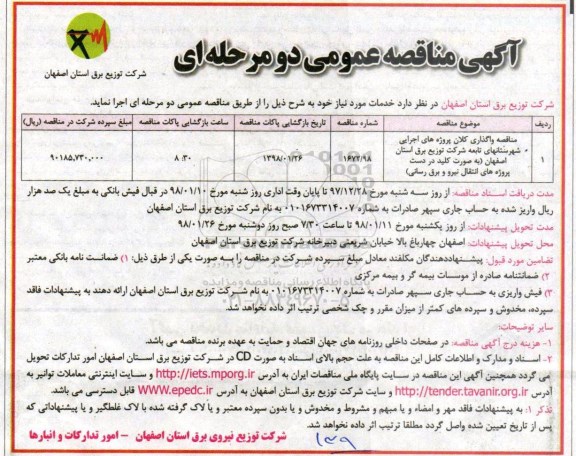 آگهی مناقصه عمومی دو مرحله ای
شرکت توزیع برق استان اصفهان
شرکت توزیع برق استان اصفهان در نظر دارد خدمات مورد نیاز خود به شرح ذیل را از طریق مناقصه عمومی دو مرحله ای اجرا نماید.
ردیف موضوع مناقصه شماره مناقصه تاریخ بازگشایی پاکات مناقصه ساعت بازگشایی پاکات مناقصه مبلغ سپرده شرکت در مناقصه (ریال)
۱ مناقصه واگذاری کلان پروژه های اجرایی شهرستانهای تابعه شرکت توزیع برق استان اصفهان (به صورت کلید در دست پروژه های انتقال نیرو و برق رسانی) ۱۶۷۲/۹۸ ۱۳۹۸/۰۱/۲۶ ۸:۳۰ ۹۰۱۸۵,۷۳۰,۰۰۰
مدت دریافت اسناد مناقصه: از روز سه شنبه مورخ ۹۷/۱۲/۲۸ تا پایان وقت اداری روز شنبه مورخ ۹۸/۰۱/۱۰ در قبال فیش بانکی به مبلغ یک صد هزار
ریال واریز شده به حساب جاری سپهر صادرات به شماره ۰۱۰۱۶۷۳۳۱۴۰۰۷ به نام شرکت توزیع برق استان اصفهان
مدت تحویل پیشنهادات: از روز یکشنبه مورخ ۹۸/۰۱/۱۱ تا ساعت ۷/۳۰ صبح روز دوشنبه مورخ ۹۸/۰۱/۲۶
محل تحویل پیشنهادات: اصفهان چهارباغ بالا خیابان شریعتی دبیرخانه شرکت توزیع برق استان اصفهان
تضامین مورد قبول: پیشنهاددهندگان مکلفند معادل مبلغ سپرده شرکت در مناقصه را به صورت یکی از طرق ذیل: ۱) ضمانت نامه بانکی معتبر
۲) ضمانتنامه صادره از موسسات بیمه گر و بیمه مرکزی
۳) فیش واریزی به حساب جاری سپهر صادرات به شماره ۰۱۰۱۶۷۳۳۱۴۰۰۷ به نام شرکت توزیع برق استان اصفهان ارائه دهند به پیشنهادات فاقد
سپرده، مخدوش و سپرده های کمتر از میزان مقرر و چک شخصی ترتیب اثر داده نخواهد شد.
سایر توضیحات:
۱- هزینه درج آگهی مناقصه: در صفحات داخلی روزنامه های جهان اقتصاد و حمایت به عهده برنده مناقصه می باشد.
۲- اسناد و مدارک و اطلاعات کامل این مناقصه به علت حجم بالای اسناد به صورت CD در شرکت توزیع برق استان اصفهان امور تدارکات تحویل
می گردد همچنین آگهی این مناقصه در سایت پایگاه ملی مناقصات ایران به آدرس http://iets.mporg.ir و سایت اینترنتی معاملات توانیر به
آدرس http://tender.tavanir.org.ir و سایت شرکت توزیع برق استان اصفهان به آدرس WWW.epedc.ir قابل دسترسی می باشد.
تذکر ۱: به پیشنهادات فاقد مهر و امضاء و یا مبهم و مشروط و مخدوش و یا بدون سپرده معتبر و یا لاک گرفته شده با لاک غلطگیر و یا پیشنهاداتی که
پس از تاریخ تعیین شده واصل گردد مطلقا ترتیب اثر داده نخواهد شد.
شرکت توزیع نیروی برق استان اصفهان - امور تدارکات و انبارها